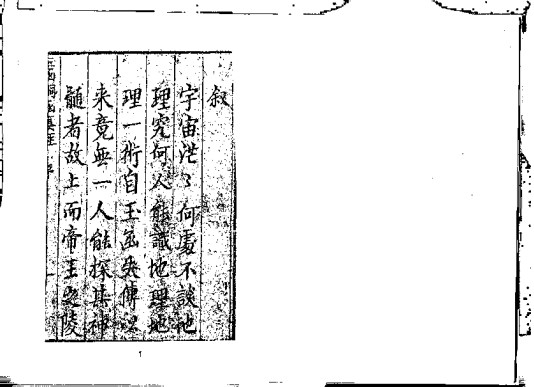 叙
宇宙茫〻何處不談地
理究何人能識地理地
理一術自玉函失傳以
来竟無一人能探其神
髓者故上而帝王之陵
1